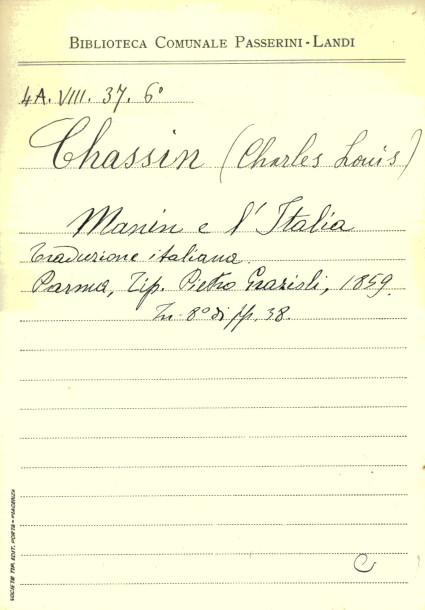 BIBLIOTECA COMUNALE PASSERINI-LANDI
4A. VIII. 37. 6°
Chassin (Charles Louis)
Manin e l'Italia
Traduzione italiana.
Parma, Tip. Pietro Grazioli, 1859.
In-8° di pp. 38.
C
SOCIETÀ TIP. EDIT. PORTA - PIACENZA